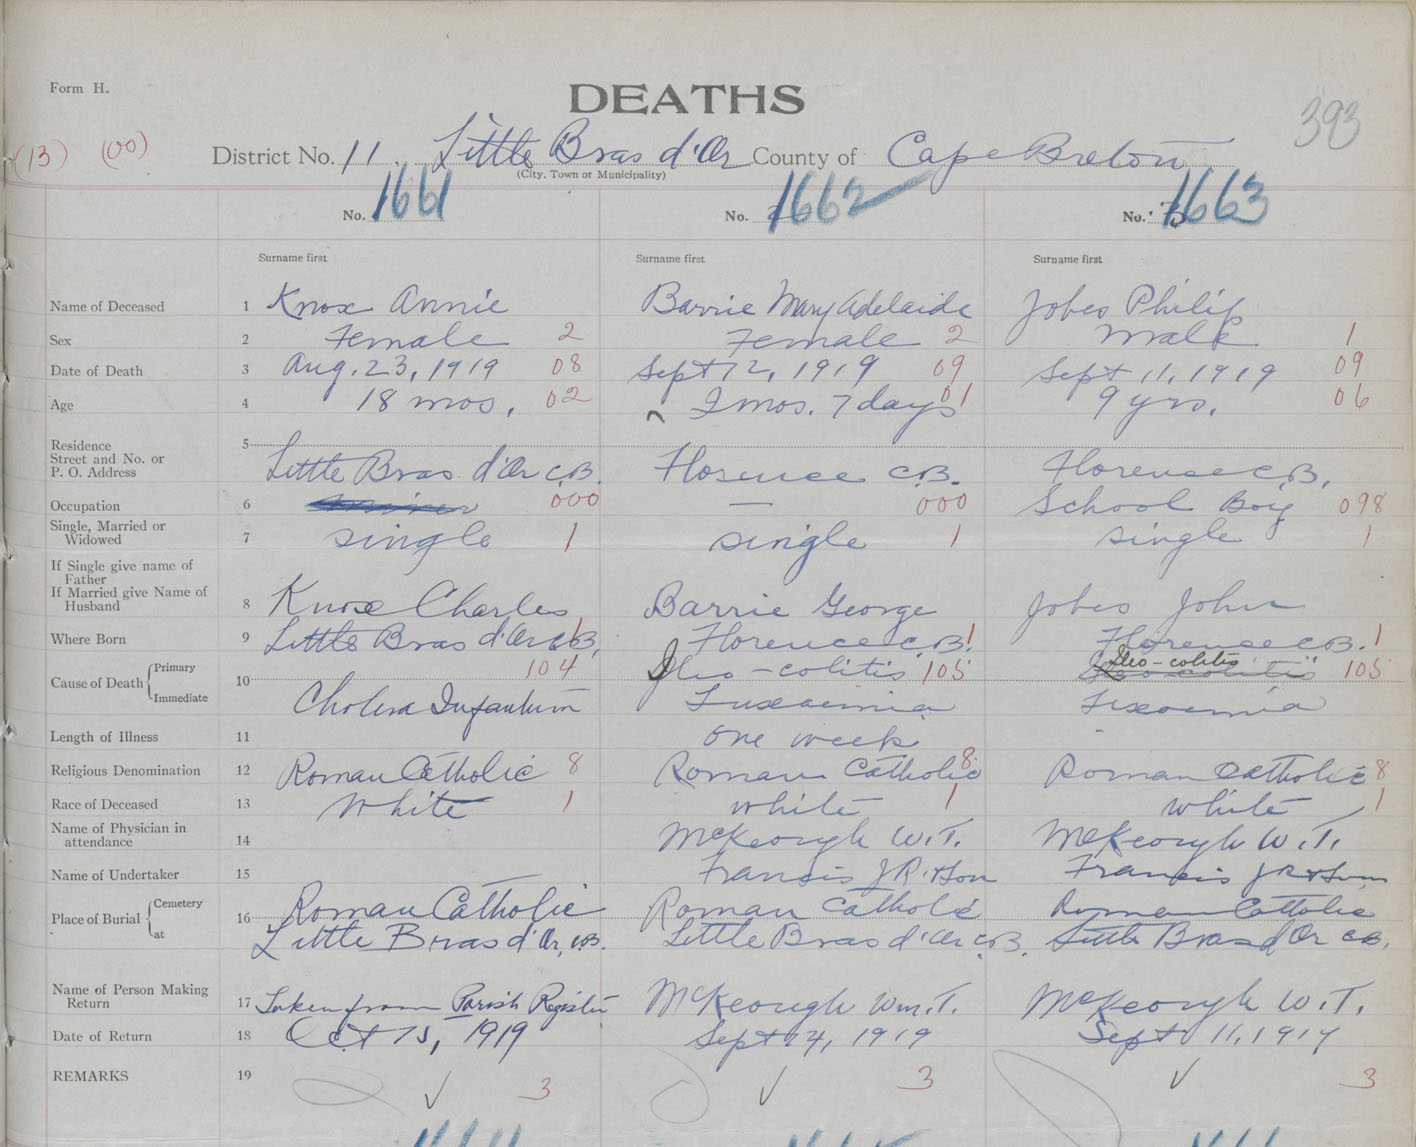 Form H.
DEATHS
393
(13) (00)
District No. 11. Little Bras d'Or County of Cape Breton
(City, Town or Municipality)
No. 1661 No. 1662 No. 1663
Surname first Surname first Surname first
Name of Deceased 1 Knox Annie Barrie Mary Adelaide Jobes Philip
Sex 2 Female 2 Female 2 Male 1
Date of Death 3 Aug. 23, 1919 08 Sept 12, 1919 09 Sept 11, 1919 09
Age 4 18 mos. 02 2 mos. 7 days 01 9 yrs. 06
Residence 5
Street and No. or
P. O. Address Little Bras d'Or C.B. Florence C.B. Florence C.B.
Occupation 6 000 — 000 School Boy 098
Single, Married or
Widowed 7 single 1 single 1 single 1
If Single give name of
Father
If Married give Name of
Husband 8 Knox Charles Barrie George Jobes John
Where Born 9 Little Bras d'Or C.B. 1 Florence C.B. 1 Florence C.B. 1
Cause of Death Primary 10 104 Ileo-colitis 105 Ileo-colitis 105
Immediate Cholera Infantum Tuxoemia Texoemia
Length of Illness 11 one week -
Religious Denomination 12 Roman Catholic 8 Roman Catholic 8 Roman Catholic 8
Race of Deceased 13 White 1 White 1 White 1
Name of Physician in
attendance 14 McKeough W.T. McKeough W.T.
Name of Undertaker 15 Francis J R & Son Francis J R & Son
Place of Burial Cemetery 16 Roman Catholic Roman Catholic Roman Catholic
at Little Bras d'Or, C.B. Little Bras d'Or C.B. Little Bras d'Or C.B.
Name of Person Making
Return 17 Taken from Parish Register McKeough Wm. T. McKeough W.T.
Date of Return 18 Oct 15, 1919 Sept 14, 1919 Sept 11, 1919
REMARKS 19 ✓ 3 ✓ 3 ✓ 3